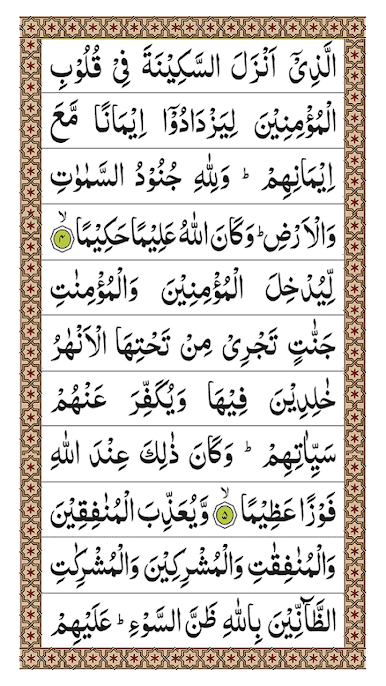 الَّذِیْۤ اَنْزَلَ السَّكِیْنَةَ فِیْ قُلُوْبِ
الْمُؤْمِنِیْنَ لِیَزْدَادُوْۤا اِیْمَانًا مَّعَ
اِیْمَانِهِمْ ؕ وَلِلّٰهِ جُنُوْدُ السَّمٰوٰتِ
وَالْاَرْضِ ؕ وَكَانَ اللّٰهُ عَلِیْمًا حَكِیْمًا ۙ۴
لِّیُدْخِلَ الْمُؤْمِنِیْنَ وَالْمُؤْمِنٰتِ
جَنّٰتٍ تَجْرِیْ مِنْ تَحْتِهَا الْاَنْهٰرُ
خٰلِدِیْنَ فِیْهَا وَیُكَفِّرَ عَنْهُمْ
سَیِّاٰتِهِمْ ؕ وَكَانَ ذٰلِكَ عِنْدَ اللّٰهِ
فَوْزًا عَظِیْمًا ۙ۵ وَّیُعَذِّبَ الْمُنٰفِقِیْنَ
وَالْمُنٰفِقٰتِ وَالْمُشْرِكِیْنَ وَالْمُشْرِكٰتِ
الظَّآنِّیْنَ بِاللّٰهِ ظَنَّ السَّوْءِ ؕ عَلَیْهِمْ